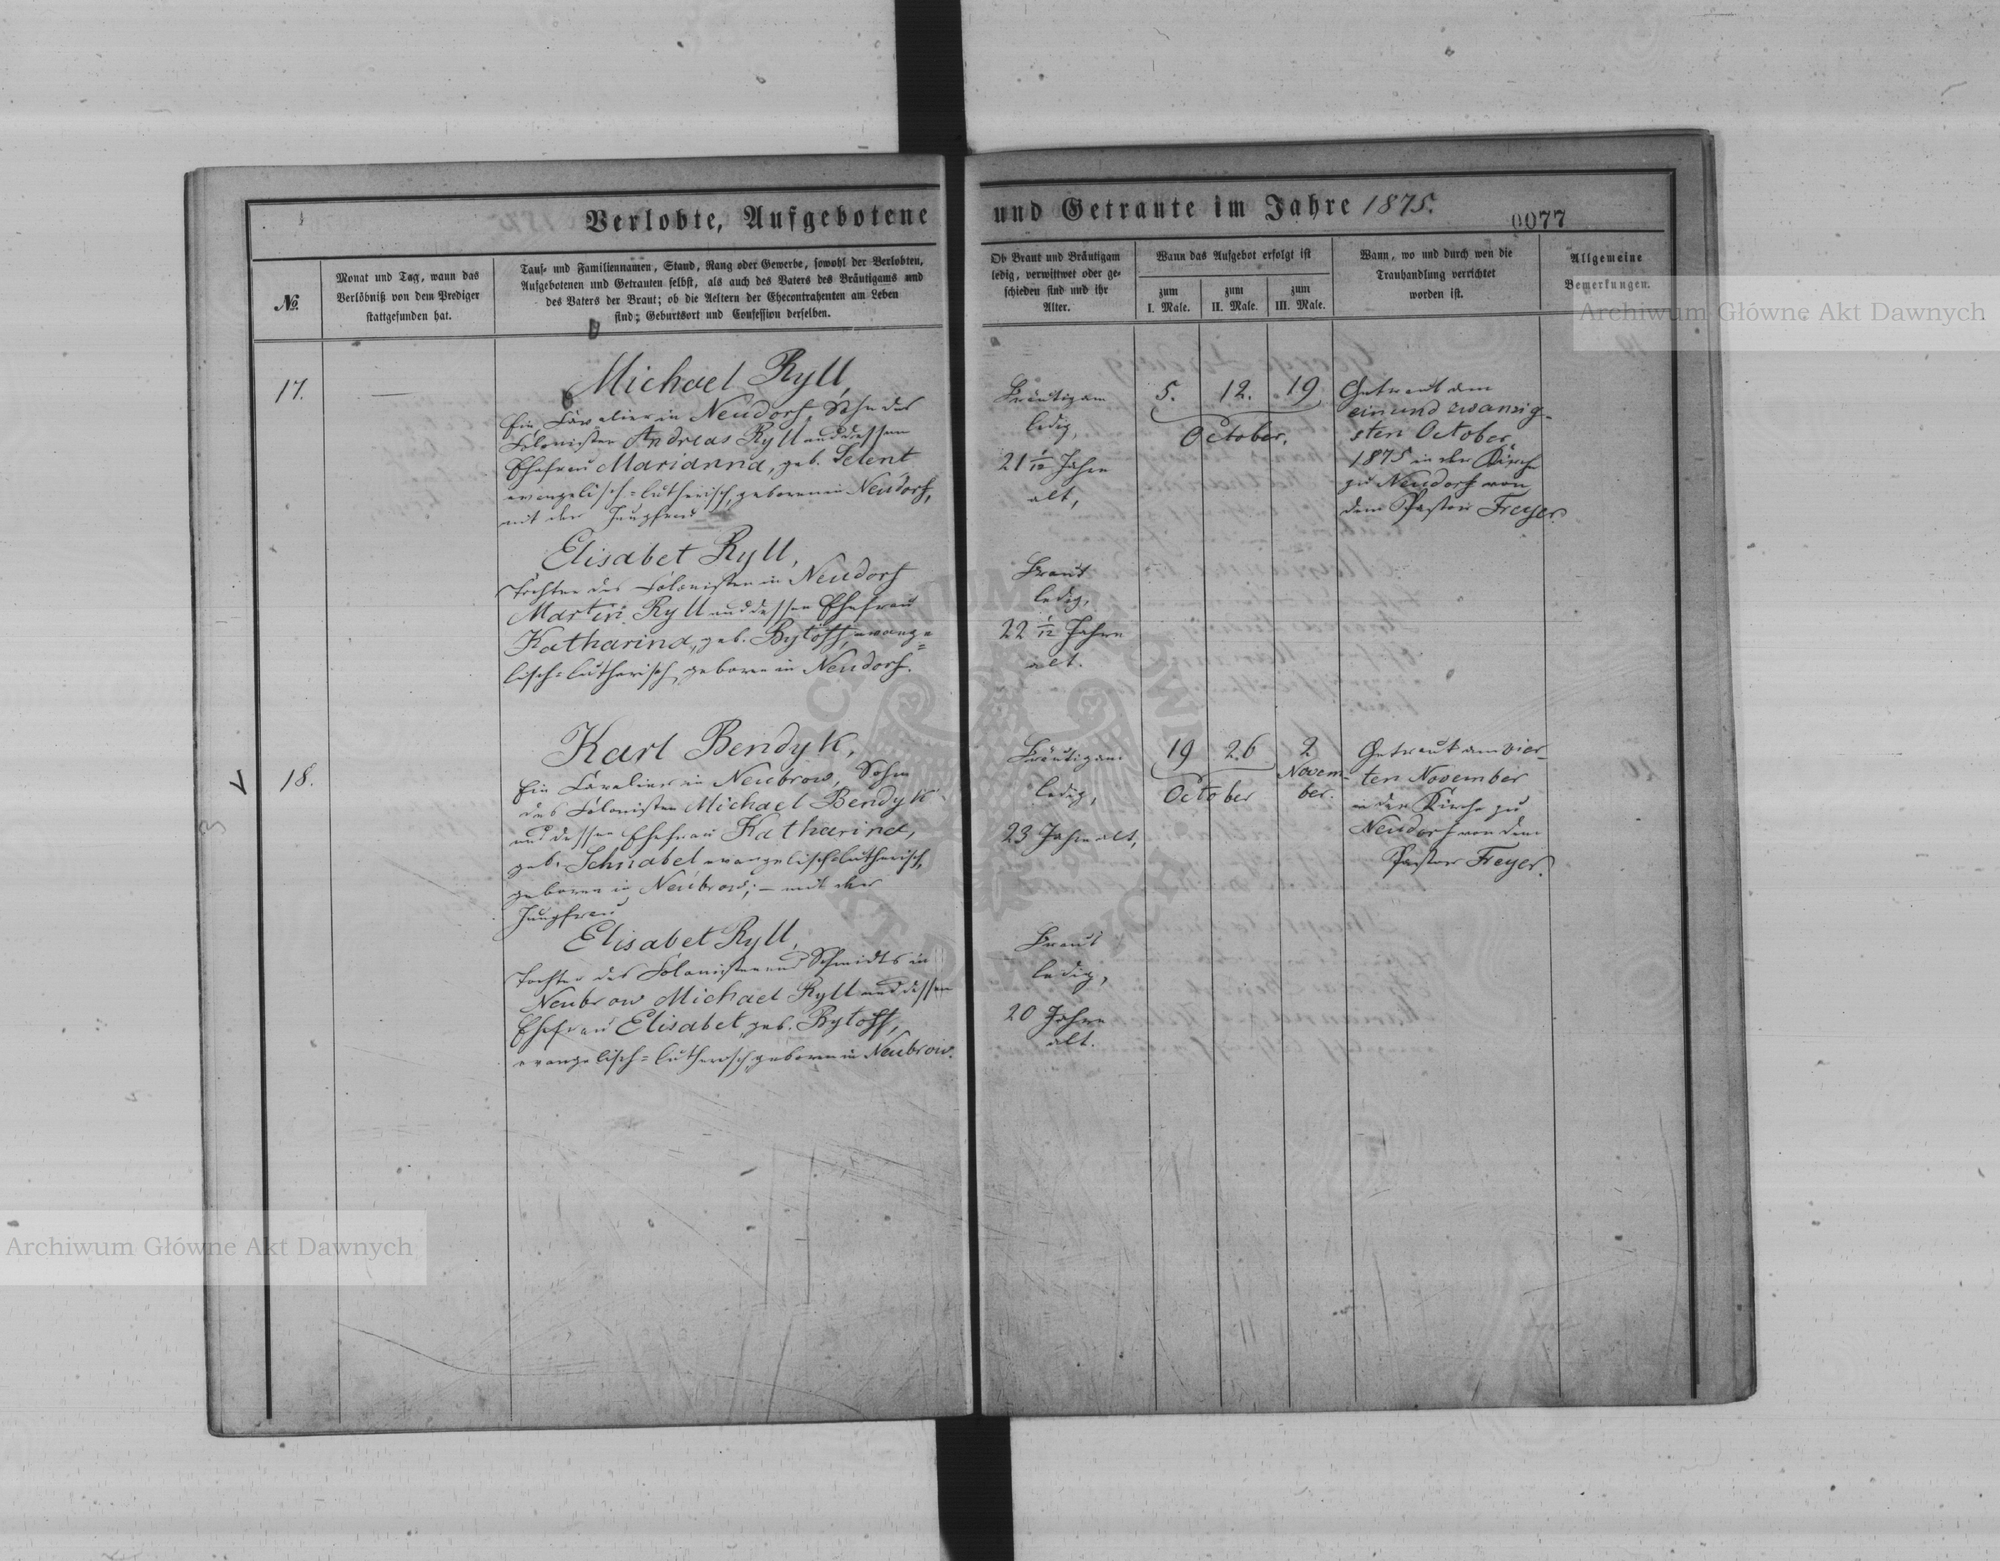 Verlobte, Aufgebotene und Getraute im Jahre 1875.
0077
№
Monat und Tag, wann das
Verlöbniß von dem Prediger
stattgefunden hat.
Tauf- und Familiennamen, Stand, Rang oder Gewerbe, sowohl der Verlobten,
Aufgebotenen und Getrauten selbst, als auch des Vaters des Bräutigams und
des Vaters der Braut; ob die Aeltern der Ehecontrahenten am Leben
sind; Geburtsort und Confession derselben.
Ob Braut und Bräutigam
ledig, verwittwet oder ge-
schieden sind und ihr
Alter.
Wann das Aufgebot erfolgt ist
zum
I. Male.
zum
II. Male.
zum
III. Male.
Wann, wo und durch wen die
Trauhandlung verrichtet
worden ist.
Allgemeine
Bemerkungen.
17.
Michael Ryll,
Ein Cavalier in Neudorf, Sohn des
Colonisten Andreas Ryll und dessen
Ehefrau Marianna, geb. Selent
evangelisch-lutherisch, geboren in Neudorf,
mit der Jungfrau
Elisabet Ryll,
Tochter des Colonisten in Neudorf
Martin Ryll und dessen Ehefrau
Katharina, geb. Bytoff, evang-
lisch-lutherisch, geboren in Neudorf.
Bräutigam
ledig,
21 1/12 Jahre
alt,
Braut
ledig,
22 1/12 Jahre
alt.
5. 12. 19.
October.
Getraut am
einund zwanzig-
sten October
1875 in der Kirche
zu Neudorf von
dem Pastor Freyer.
18.
Karl Bendyk,
Ein Cavalier in Neubrow, Sohn
des Colonisten Michael Bendyk
und dessen Ehefrau Katharina,
geb. Schnabel evangelisch-lutherisch,
geboren in Neubrow; – mit der
Jungfrau
Elisabet Ryll,
Tochter des Colonisten und Schmidts in
Neubrow Michael Ryll und dessen
Ehefrau Elisabet, geb. Bytoff,
evangelisch-lutherisch, geboren in Neubrow.
Bräutigam
ledig,
23 Jahre alt,
Braut
ledig,
20 Jahre
alt.
19 26
October
2
Novem-
ber.
Getraut am vier-
ten November
in der Kirche zu
Neudorf von dem
Pastor Freyer.
Archiwum Główne Akt Dawnych
Archiwum Główne Akt Dawnych